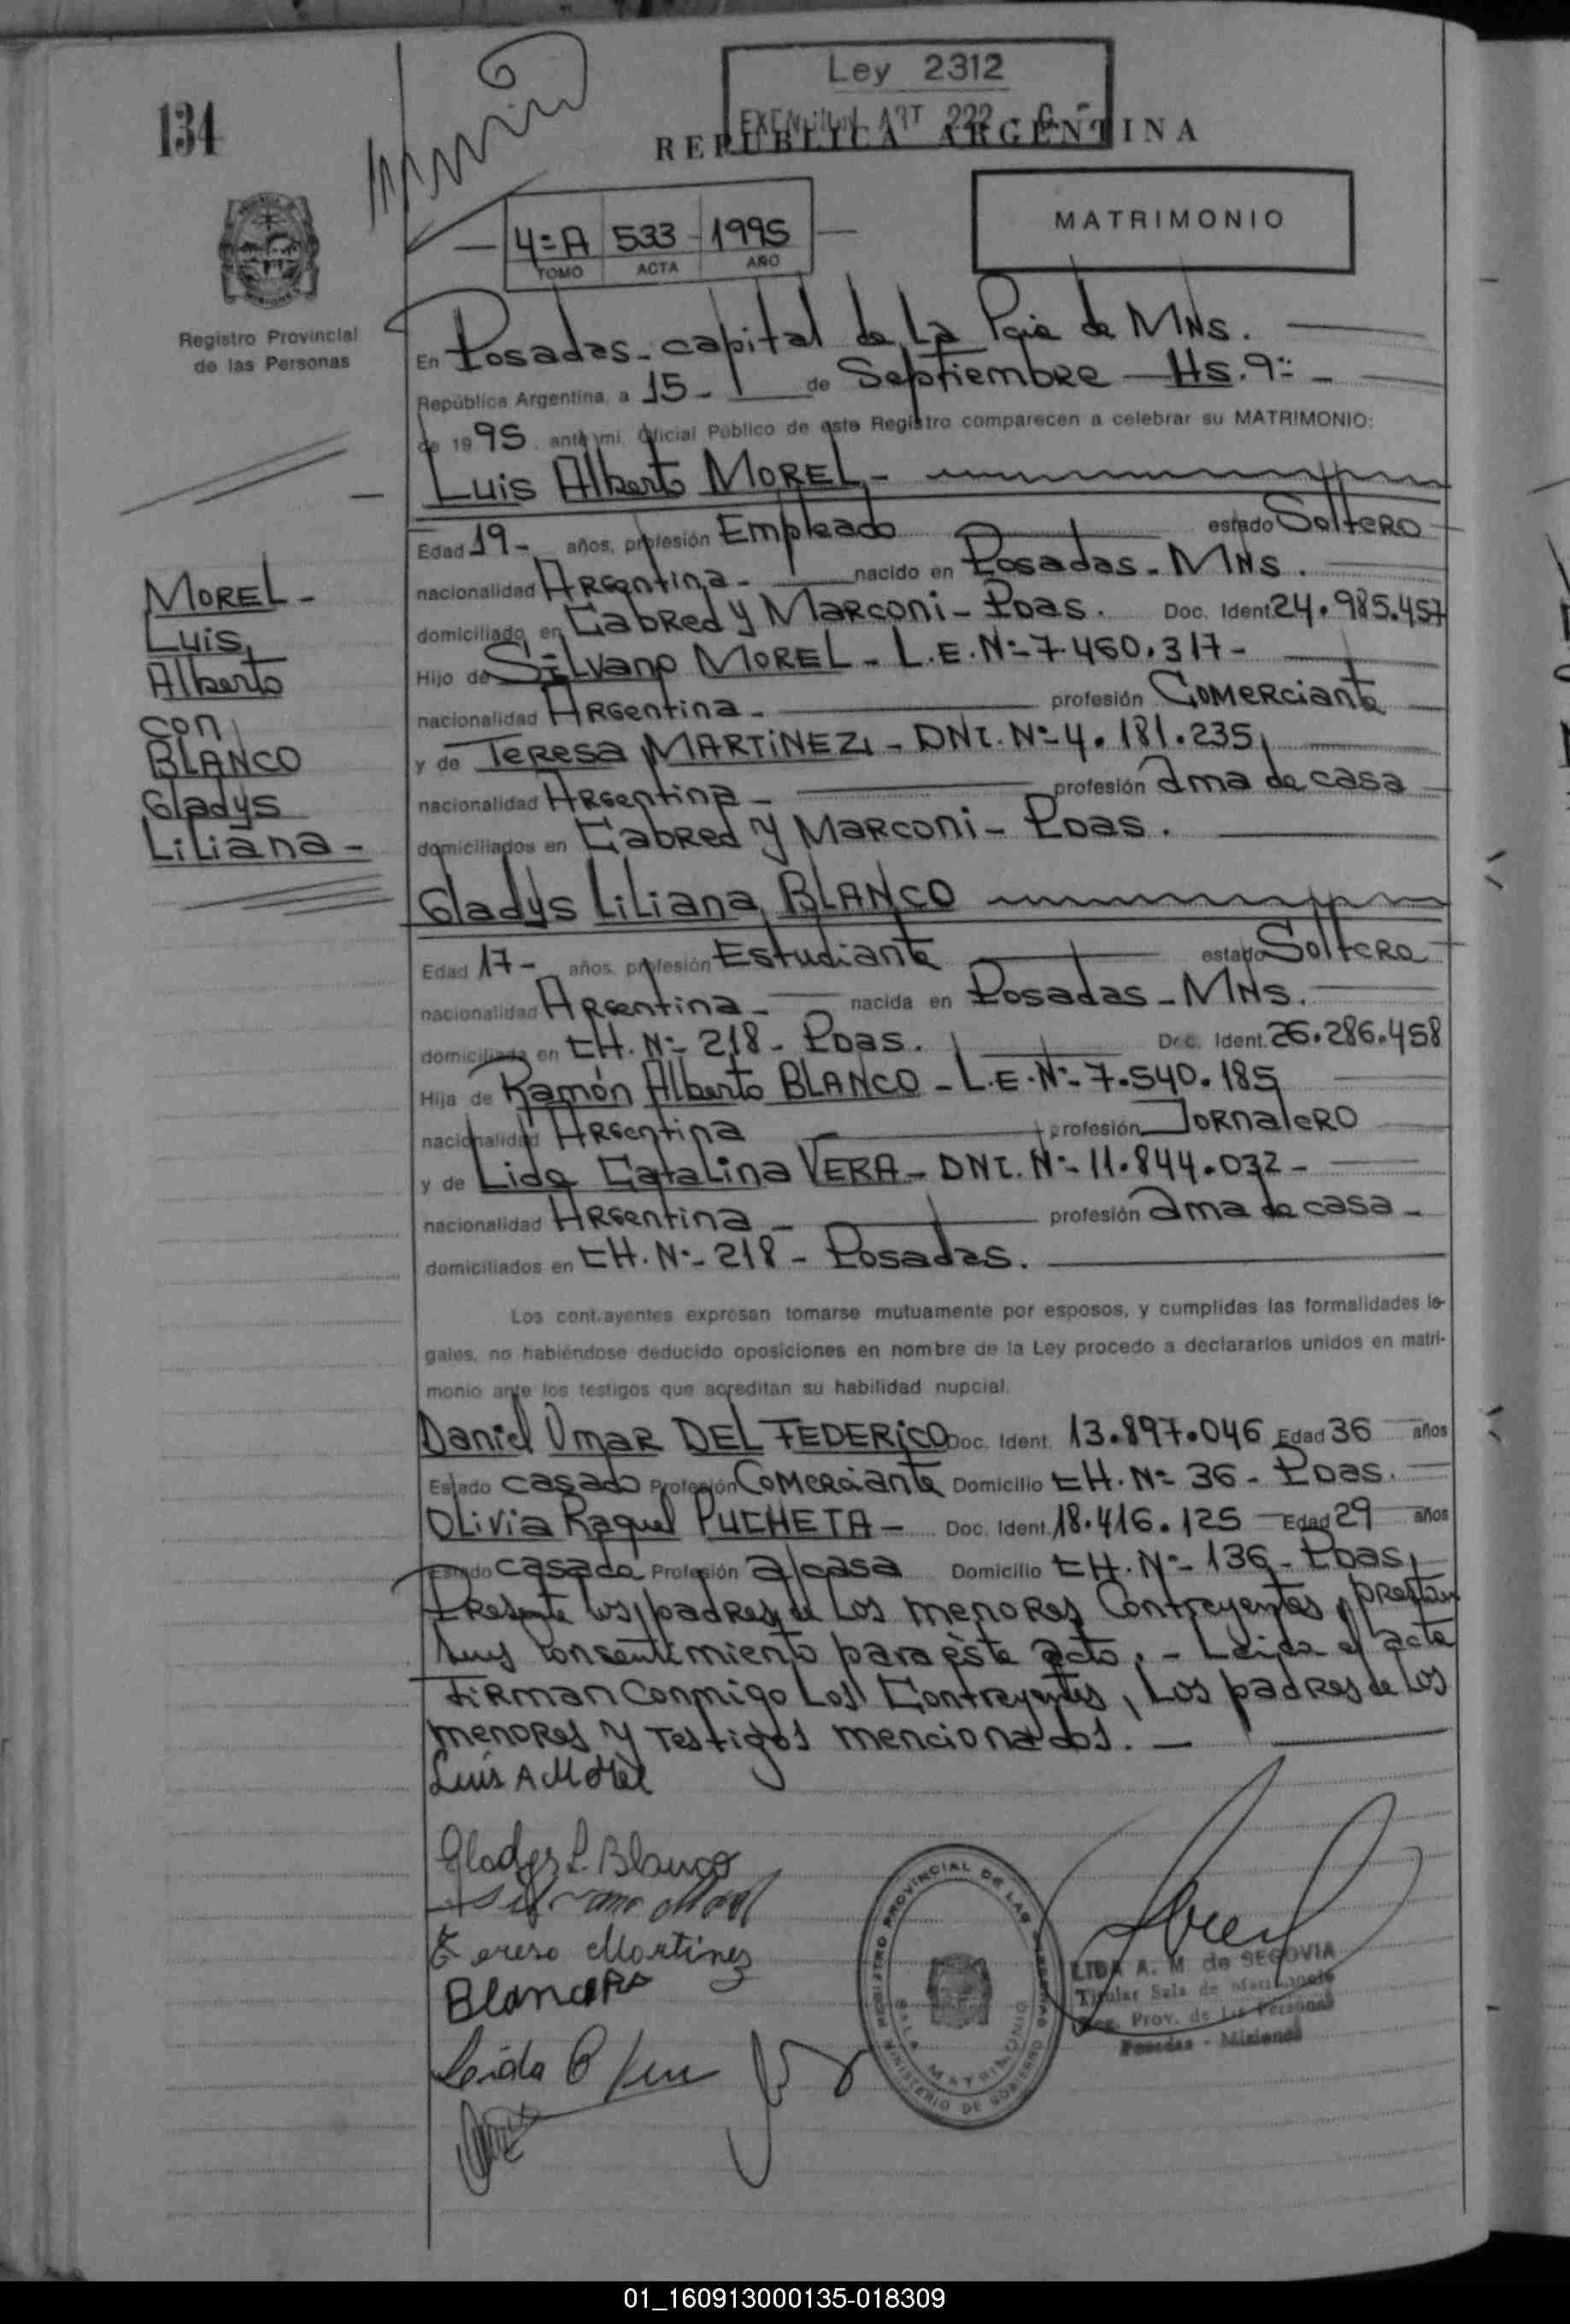 134
Ley 2312
EXENCION ART 222
REPUBLICA ARGENTINA
4=A 533 1995
TOMO ACTA AÑO
MATRIMONIO
Registro Provincial
de las Personas
En Posadas - capital de La Pcia de MNS.
República Argentina, a 15 - de Septiembre - Hs. 9=
de 1995, ante mi, Oficial Público de este Registro comparecen a celebrar su MATRIMONIO:
Luis Alberto MOREL -
Edad 19 - años, profesión Empleado estado Soltero
nacionalidad Argentina - nacido en Posadas - MNS.
domiciliado en Cabred y Marconi - Pdas. Doc. Ident. 24.985.457
Hijo de Silvano MOREL - L.E. Nº- 7.460.317 -
nacionalidad Argentina - profesión Comerciante
y de Teresa MARTINEZ - DNI. Nº- 4.181.235,
nacionalidad Argentina - profesión ama de casa
domiciliados en Cabred y Marconi - Pdas.
MOREL -
Luis
Alberto
con
BLANCO
Gladys
Liliana -
Gladys Liliana BLANCO
Edad 17 - años, profesión Estudiante estado Soltera
nacionalidad Argentina - nacida en Posadas - MNS.
domiciliada en CH. Nº- 218 - Pdas. Doc. Ident. 26.286.458
Hija de Ramón Alberto BLANCO - L.E. Nº- 7.540.185
nacionalidad Argentina profesión Jornalero
y de Lida Catalina VERA - DNI. Nº- 11.844.032 -
nacionalidad Argentina - profesión ama de casa -
domiciliados en CH. Nº- 218 - Posadas.
Los contrayentes expresan tomarse mutuamente por esposos, y cumplidas las formalidades le-
gales, no habiéndose deducido oposiciones en nombre de la Ley procedo a declararlos unidos en matri-
monio ante los testigos que acreditan su habilidad nupcial.
Daniel Omar DEL FEDERICO Doc. Ident. 13.897.046 Edad 36 años
Estado casado Profesión Comerciante Domicilio CH. Nº- 36 - Pdas.
Olivia Raquel PUCHETA - Doc. Ident. 18.416.125 - Edad 29 años
Estado casada Profesión a/casa Domicilio CH. Nº- 136 - Pdas,
Presente los padres de Los menores Contrayentes, prestan
sus consentimiento para éste acto. - Leida el acta
Firman Conmigo Los Contrayentes, Los padres de Los
menores y Testigos mencionados. -
Luis A Morel
Gladys L. Blanco
Silvano Morel
Teresa Martinez
Blanco RA
Lida C
REGISTRO PROVINCIAL DE LAS PERSONAS
SALA MATRIMONIO
MINISTERIO DE GOBIERNO
LIDA A. M. de SEGOVIA
Titular Sala de Matrimonio
Reg. Prov. de las Personas
Posadas - Misiones
01_160913000135-018309